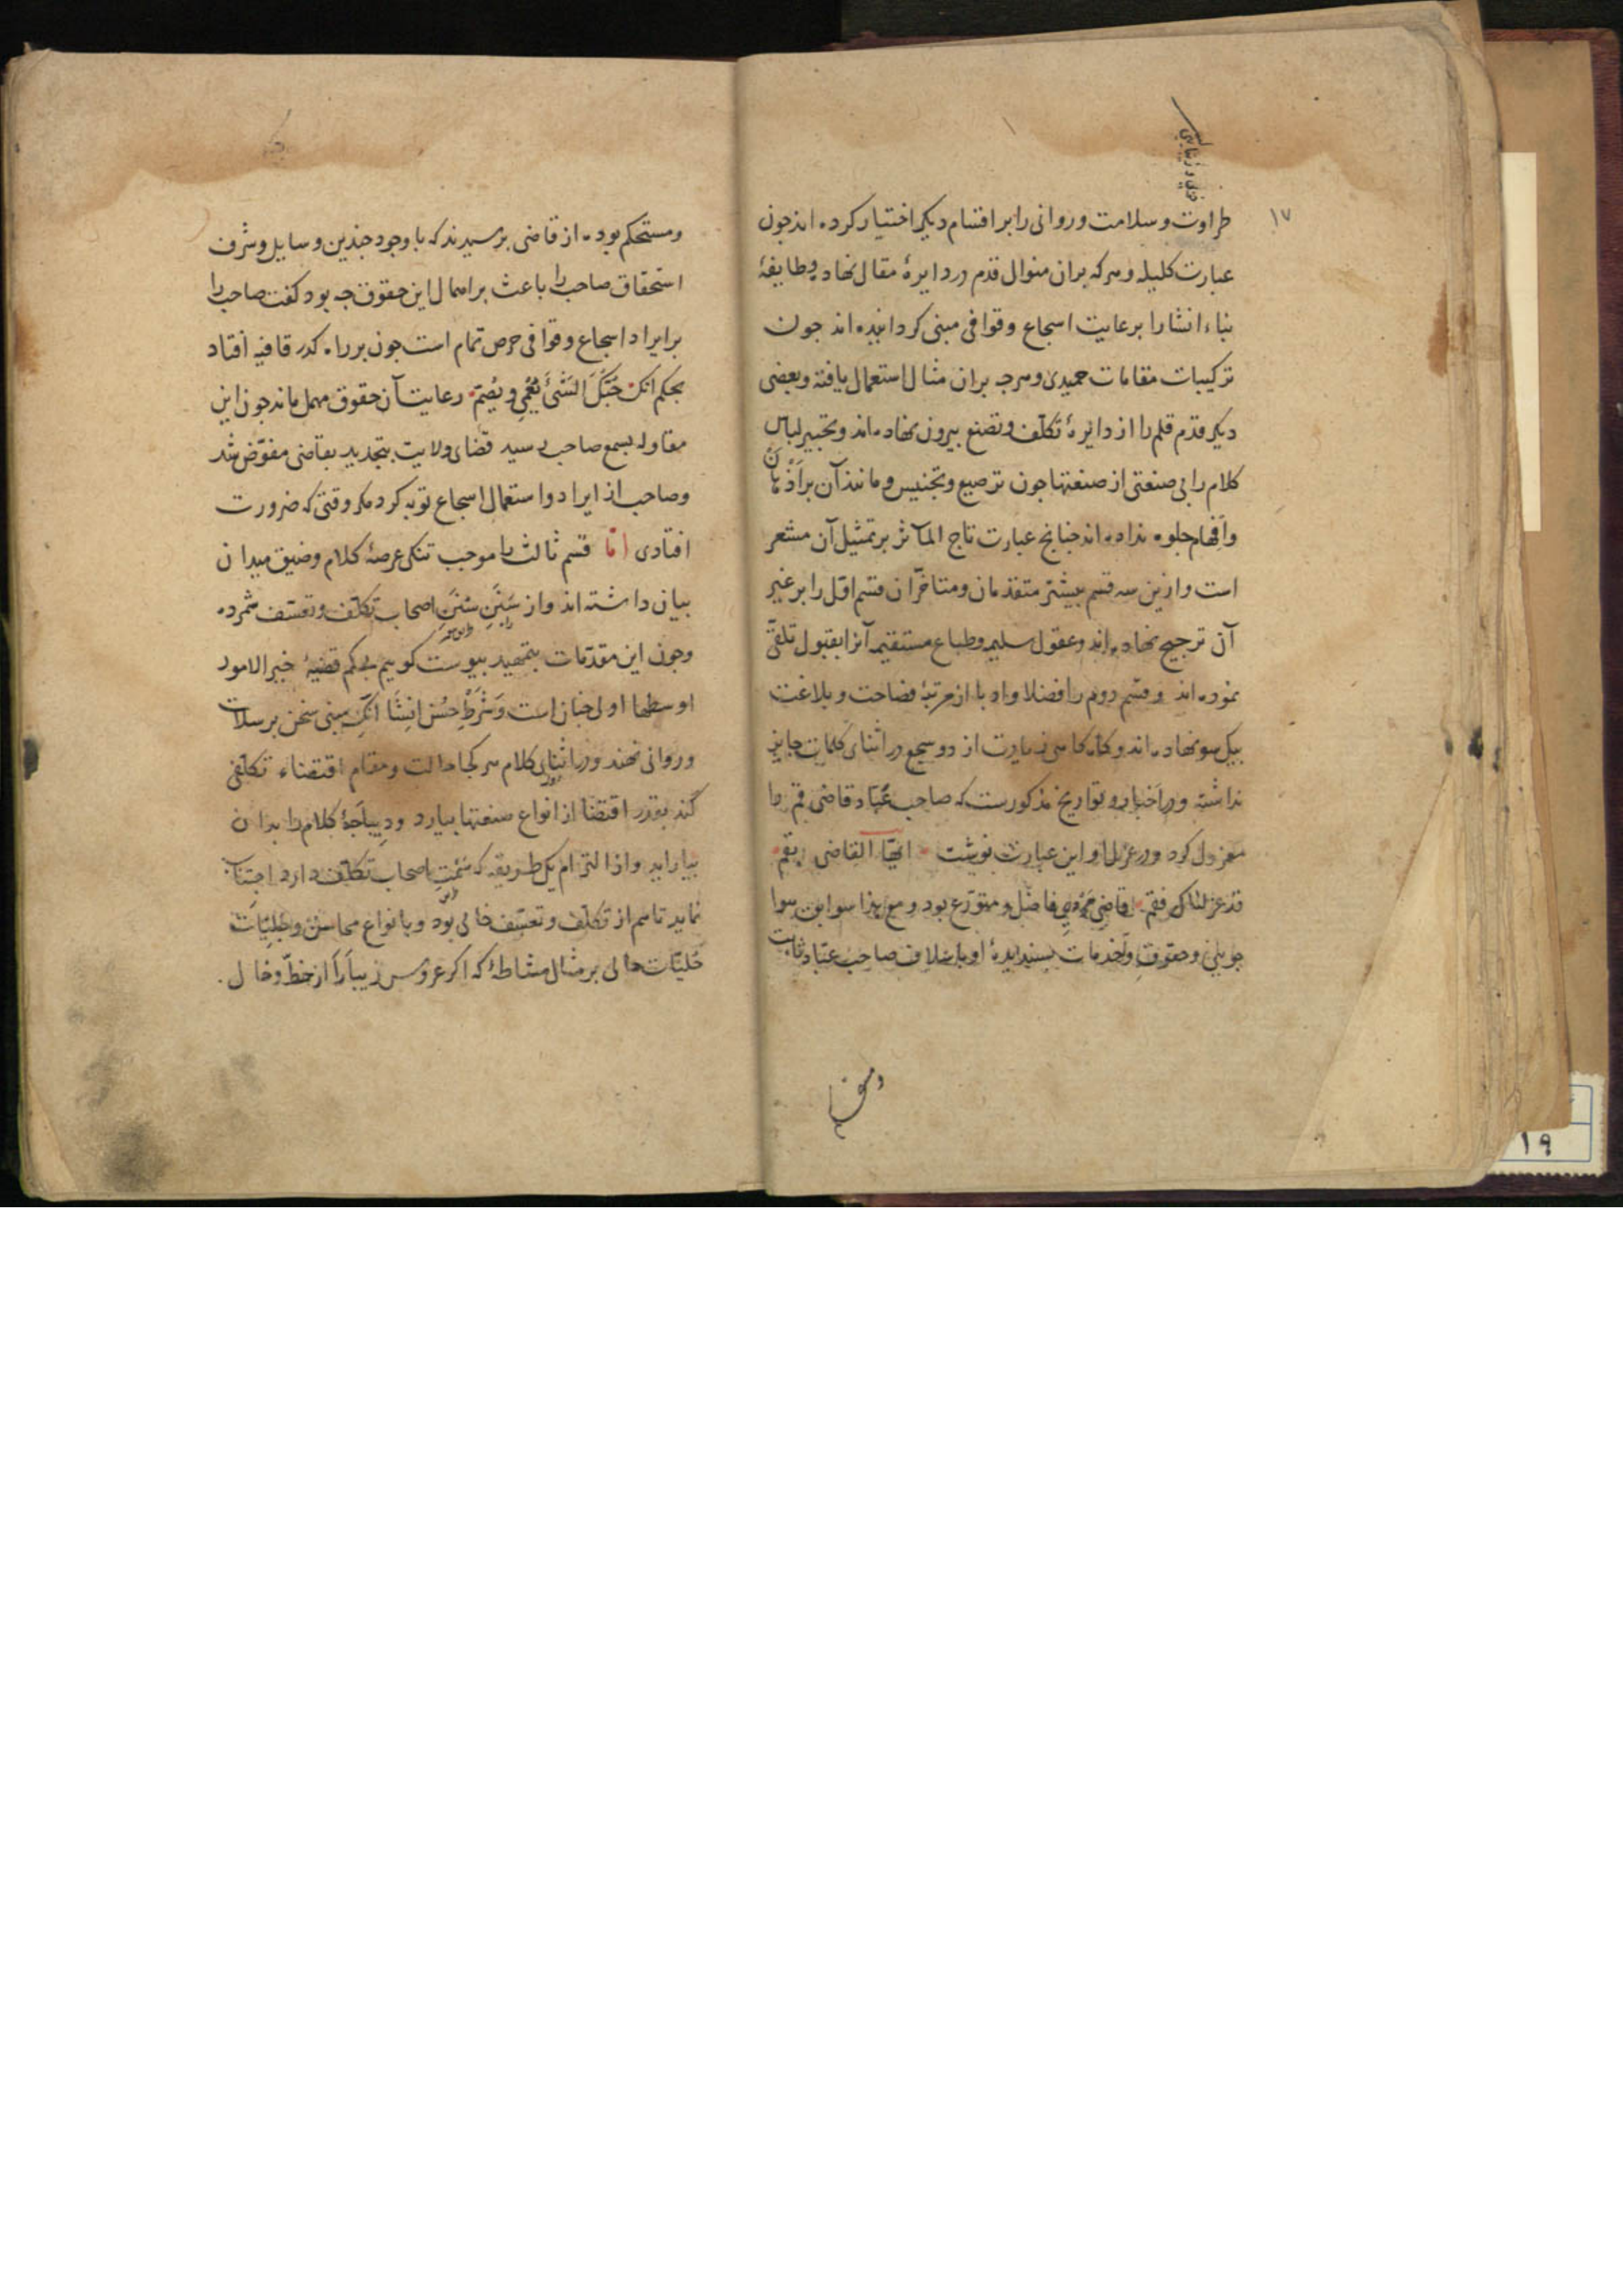 ١٧
طراوت و سلامت و روانی را بر اقسام دیکر اختیار کرده اند جون
عبارت کلیله و هر که بران منوال قدم در دایرۀ مقال نهاد و طایفۀ
بناء انشا را بر عایت اسجاع و قوافی مبنی کردانیده اند جون
ترکیبات مقامات حمیدی و هرجه بران مثال استعمال یافته و بعضی
دیکر قدم قلم را از دایرۀ تکلّف و تصنع بیرون نهاده اند و تحبیر لباس
کلام را بی صنعتی از صنعتها جون ترصیع و تجنیس و مانند آن بر اَذْهانْ
و افهام جلوه نداده اند جنانج عبارت تاج المآثر بر تمثیل آن مشعر
است و ازین سه قسم بیشتر متقدمان و متاخّران قسم اوّل را بر غیر
آن ترجیح نهاده اند و عقول سلیم و طباع مستقیم آنرا بقبول تلقّی
نموده اند و قسم دوم را فضلا و ادبا از مرتبۀ فصاحت و بلاغت
بیکسو نهاده اند و کاه کاهی زیادت از دو سجع در اثنای کلمات جایز
نداشته و در اخبار و تواریخ مذکورست که صاحب عبّاد قاضی قم را
معزول کرد و در عزل او این عبارت نوشت ایّها القاضی بقم
قد عزلناک فقم قاضی مردی فاضل و متورّع بود و مع هذا سوابق
جوینی و حقوق و خدمات بسندیدۀ او با اسلاف صاحب عبّاد ثابت
و مستحکم
و مستحکم بوده از قاضی برسیدند که با وجود جندین وسایل و شرف
استحقاق صاحب را باعث بر اهمال این حقوق جه بود کفت صاحب را
بر ایراد اسجاع و قوافی حرص تمام است جون بر راه کدر قافیه افتاد
بحکم انک حُبُّکَ الشَّئَ یُعْمِی و یُصِمّ رعایت آن حقوق مهمل ماند جون این
مقاوله بسمع صاحب رسید قضای ولایت بتجدید بقاضی مفوّض شد
و صاحب از ایراد و استعمال اسجاع توبه کرد مکر وقتی که ضرورت
افتادی امّا قسم ثالث را موجب تنکی عرصۀ کلام و ضیق میدان
بیان داشته اند و از سَنَنِ سُنَنِ اصحاب تکلّف و تعسّف شمرده
و جون این مقدّمات بتمهید بیوست کوییم بحکم قضیۀ خیر الامور
اوسطها اولی جنان است و شرطِ حُسْن انشا انک مبنی سخن بر سلاست
و روانی نهند و در اثنای کلام هر کجا حالت و مقام اقتضاء تکلّفی
کند بقدر اقتضا از انواع صنعتها بیارد و دیباجۀ کلام را بدان
بیاراید و از التزام یک طریقه که سَمْتِ اصحاب تکلّف دارد اجتناب
نماید تا هم از تکلّف و تعسّف خالی بود و بانواع محاسن و حلیّات
حُلیّات حالی بر مثال مشاطۀ که اکر عروس زیبا را از خطّ و خال
١٩